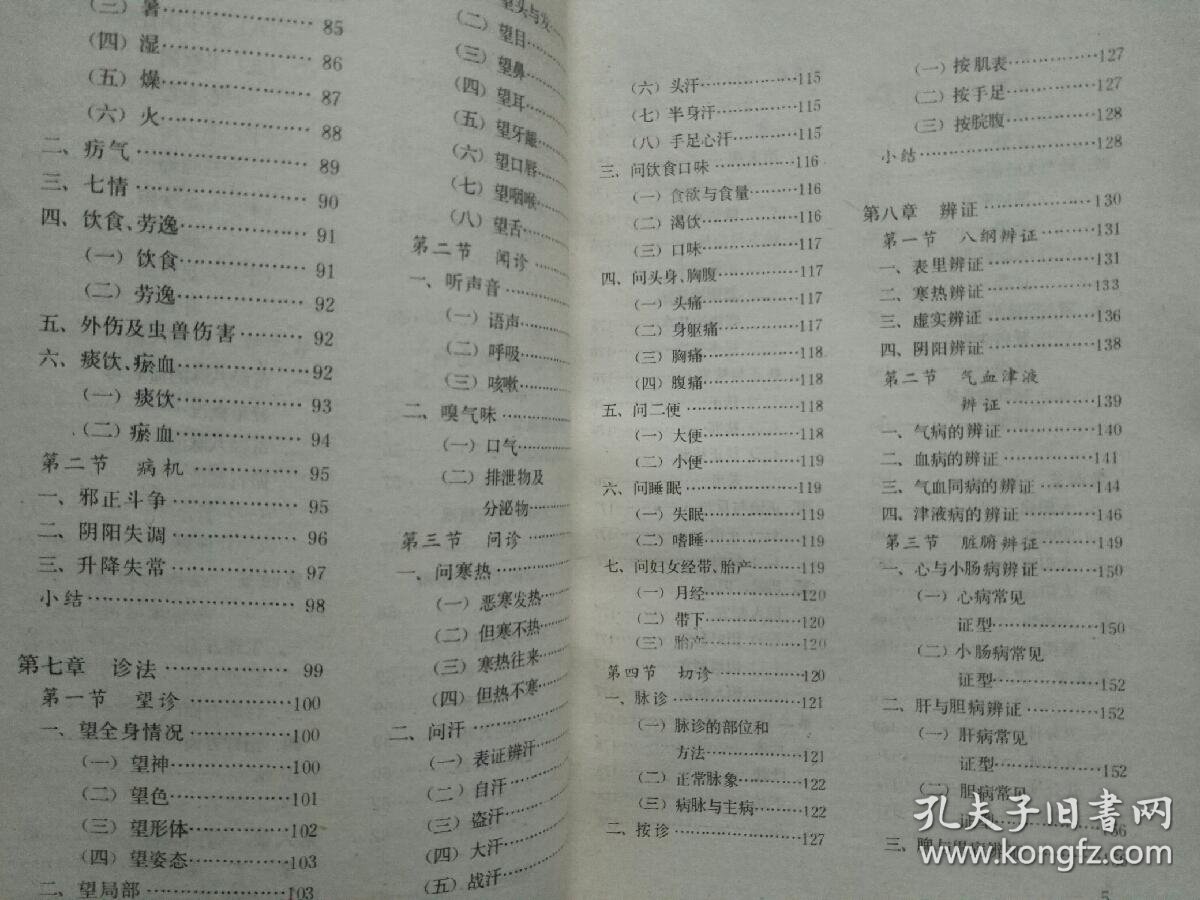 (三) 暑 85
(四) 湿 86
(五) 燥 87
(六) 火 88
二、疠气 89
三、七情 90
四、饮食、劳逸 91
(一) 饮食 91
(二) 劳逸 92
五、外伤及虫兽伤害 92
六、痰饮、瘀血 92
(一) 痰饮 93
(二) 瘀血 94
第二节 病机 95
一、邪正斗争 95
二、阴阳失调 96
三、升降失常 97
小结 98
第七章 诊法 99
第一节 望诊 100
一、望全身情况 100
(一) 望神 100
(二) 望色 101
(三) 望形体 102
(四) 望姿态 103
二、望局部 103
望头与发
(二) 望目
(三) 望鼻
(四) 望耳
(五) 望牙龈
(六) 望口唇
(七) 望咽喉
(八) 望舌
第二节 闻诊
一、听声音
(一) 语声
(二) 呼吸
(三) 咳嗽
二、嗅气味
(一) 口气
(二) 排泄物及
分泌物
第三节 问诊
一、问寒热
(一) 恶寒发热
(二) 但寒不热
(三) 寒热往来
(四) 但热不寒
二、问汗
(一) 表证辨汗
(二) 自汗
(三) 盗汗
(四) 大汗
(五) 战汗
(六) 头汗 115
(七) 半身汗 115
(八) 手足心汗 115
三、问饮食口味 116
(一) 食欲与食量 116
(二) 渴饮 116
(三) 口味 117
四、问头身、胸腹 117
(一) 头痛 117
(二) 身躯痛 117
(三) 胸痛 118
(四) 腹痛 118
五、问二便 118
(一) 大便 118
(二) 小便 119
六、问睡眠 119
(一) 失眠 119
(二) 嗜睡 119
七、问妇女经带、胎产 119
(一) 月经 120
(二) 带下 120
(三) 胎产 120
第四节 切诊 120
一、脉诊 121
(一) 脉诊的部位和
方法 121
(二) 正常脉象 122
(三) 病脉与主病 122
二、按诊 127
(一) 按肌表 127
(二) 按手足 128
(三) 按脘腹 128
小结 128
第八章 辨证 130
第一节 八纲辨证 131
一、表里辨证 131
二、寒热辨证 133
三、虚实辨证 136
四、阴阳辨证 138
第二节 气血津液
辨证 139
一、气病的辨证 140
二、血病的辨证 141
三、气血同病的辨证 144
四、津液病的辨证 146
第三节 脏腑辨证 149
一、心与小肠病辨证 150
(一) 心病常见
证型 150
(二) 小肠病常见
证型 152
二、肝与胆病辨证 152
(一) 肝病常见
证型 152
(二) 胆病常见
5
孔夫子旧書网
www.kongfz.com